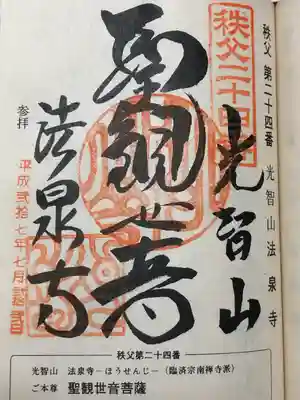 秩父 第二十四番 光智山法泉寺
秩父二十四番
光智山
聖観世音
法泉寺
参拝
平成弐拾七年七月
秩父第二十四番
光智山 法泉寺―ほうせんじ―(臨済宗南禅寺派)
ご本尊 聖観世音菩薩